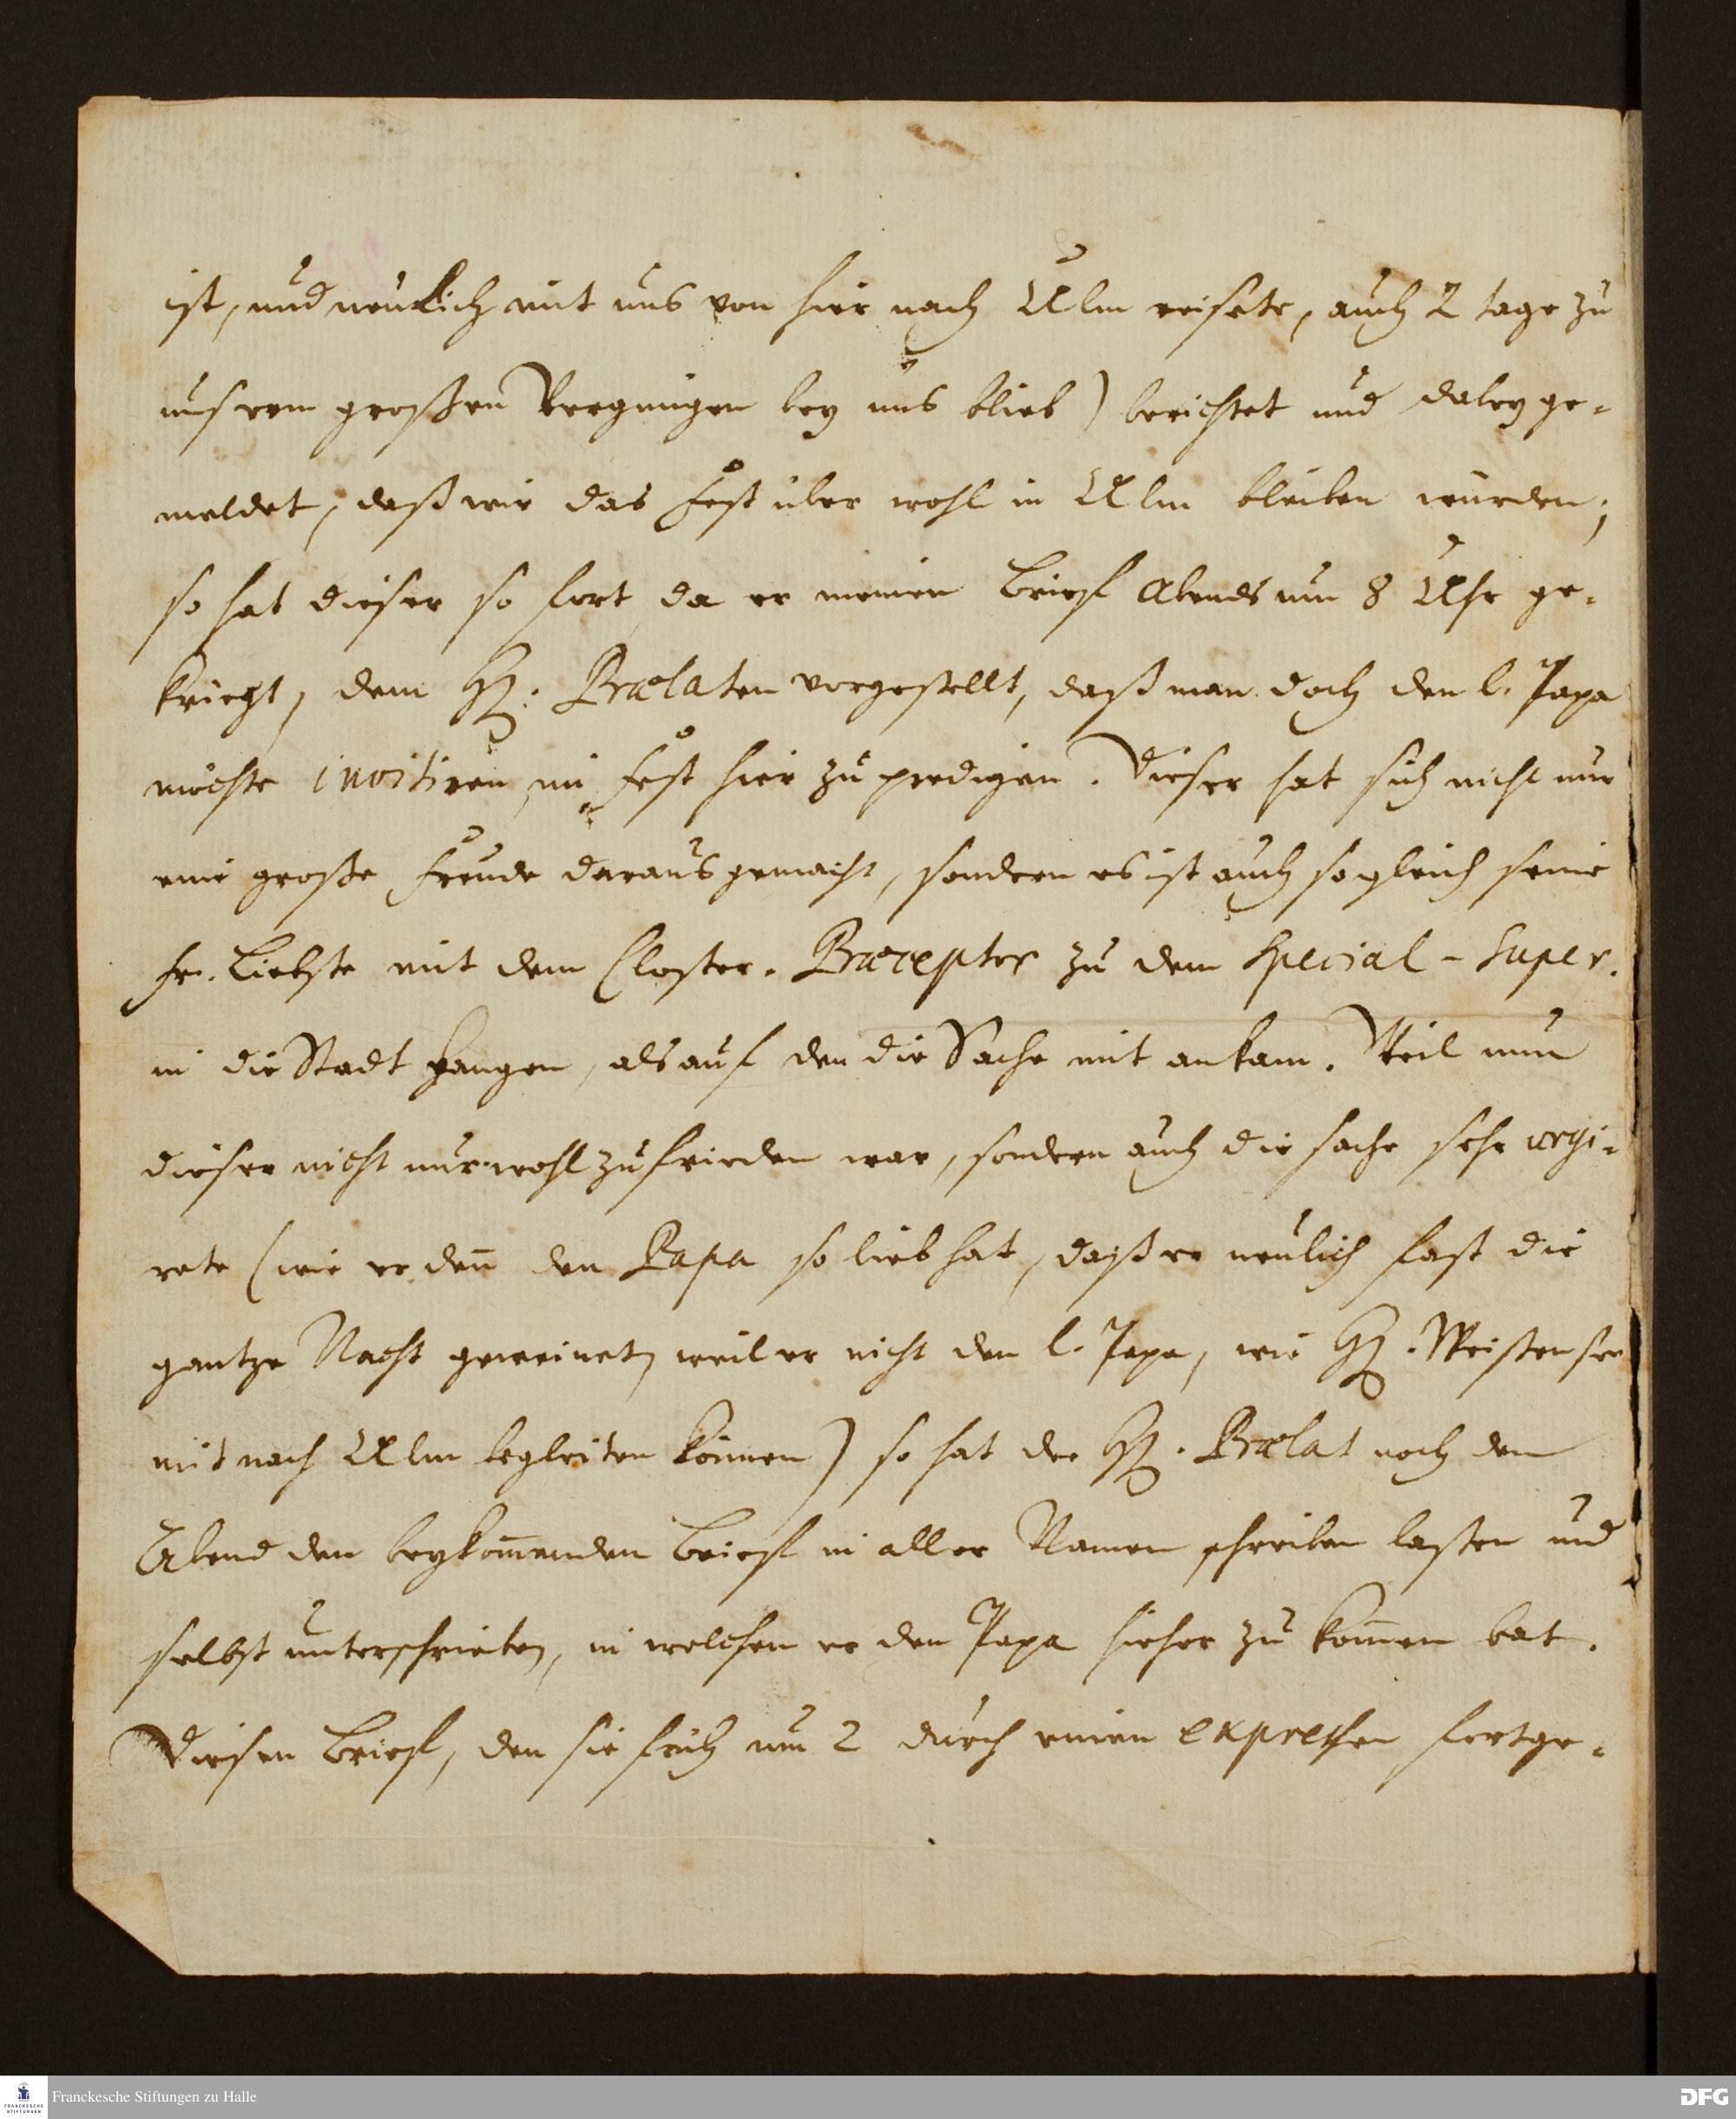 ist, und neulich mit uns von hier nach Ulm reisete, auch 2 tage zu
unsrem großen Vergnügen bey uns blieb) berichtet und dabey ge-
meldet, daß wir das Fest über wohl in Ulm bleiben würden;
so hat dieser so fort da er meinen Brief Abends um 8 Uhr ge-
kriegt, dem H. Prælaten vorgestellt, daß man doch den l. Papa
möchte invitiren, im Fest hier zu predigen. Dieser hat sich nicht nur
eine große Freude daraus gemacht, sondern es ist auch sogleich seine
Fr. Liebste mit dem Closter-Præceptor zu dem Special-Super.
in die Stadt gangen, als auf den die Sache mit ankam. Weil nun
dieser nicht nur wohl zufrieden war, sondern auch die sache sehr urgi-
rete (wie er deñ den Papa so lieb hat, daß er neulich fast die
gantze Nacht geweinet, weil er nicht den l. Papa, wie H. Weißensee
mit nach Ulm begleiten können) so hat der H. Prælat noch den
Abend den beykom̄enden Brief in aller Namen schreiben laßen und
selbst unterschrieben, in welchen er den Papa hieher zu kom̄en bat.
Diesen Brief, den sie früh um 2 durch einen expressen fortge-
Franckesche Stiftungen zu Halle
FRANCKESCHE STIFTUNGEN
DFG